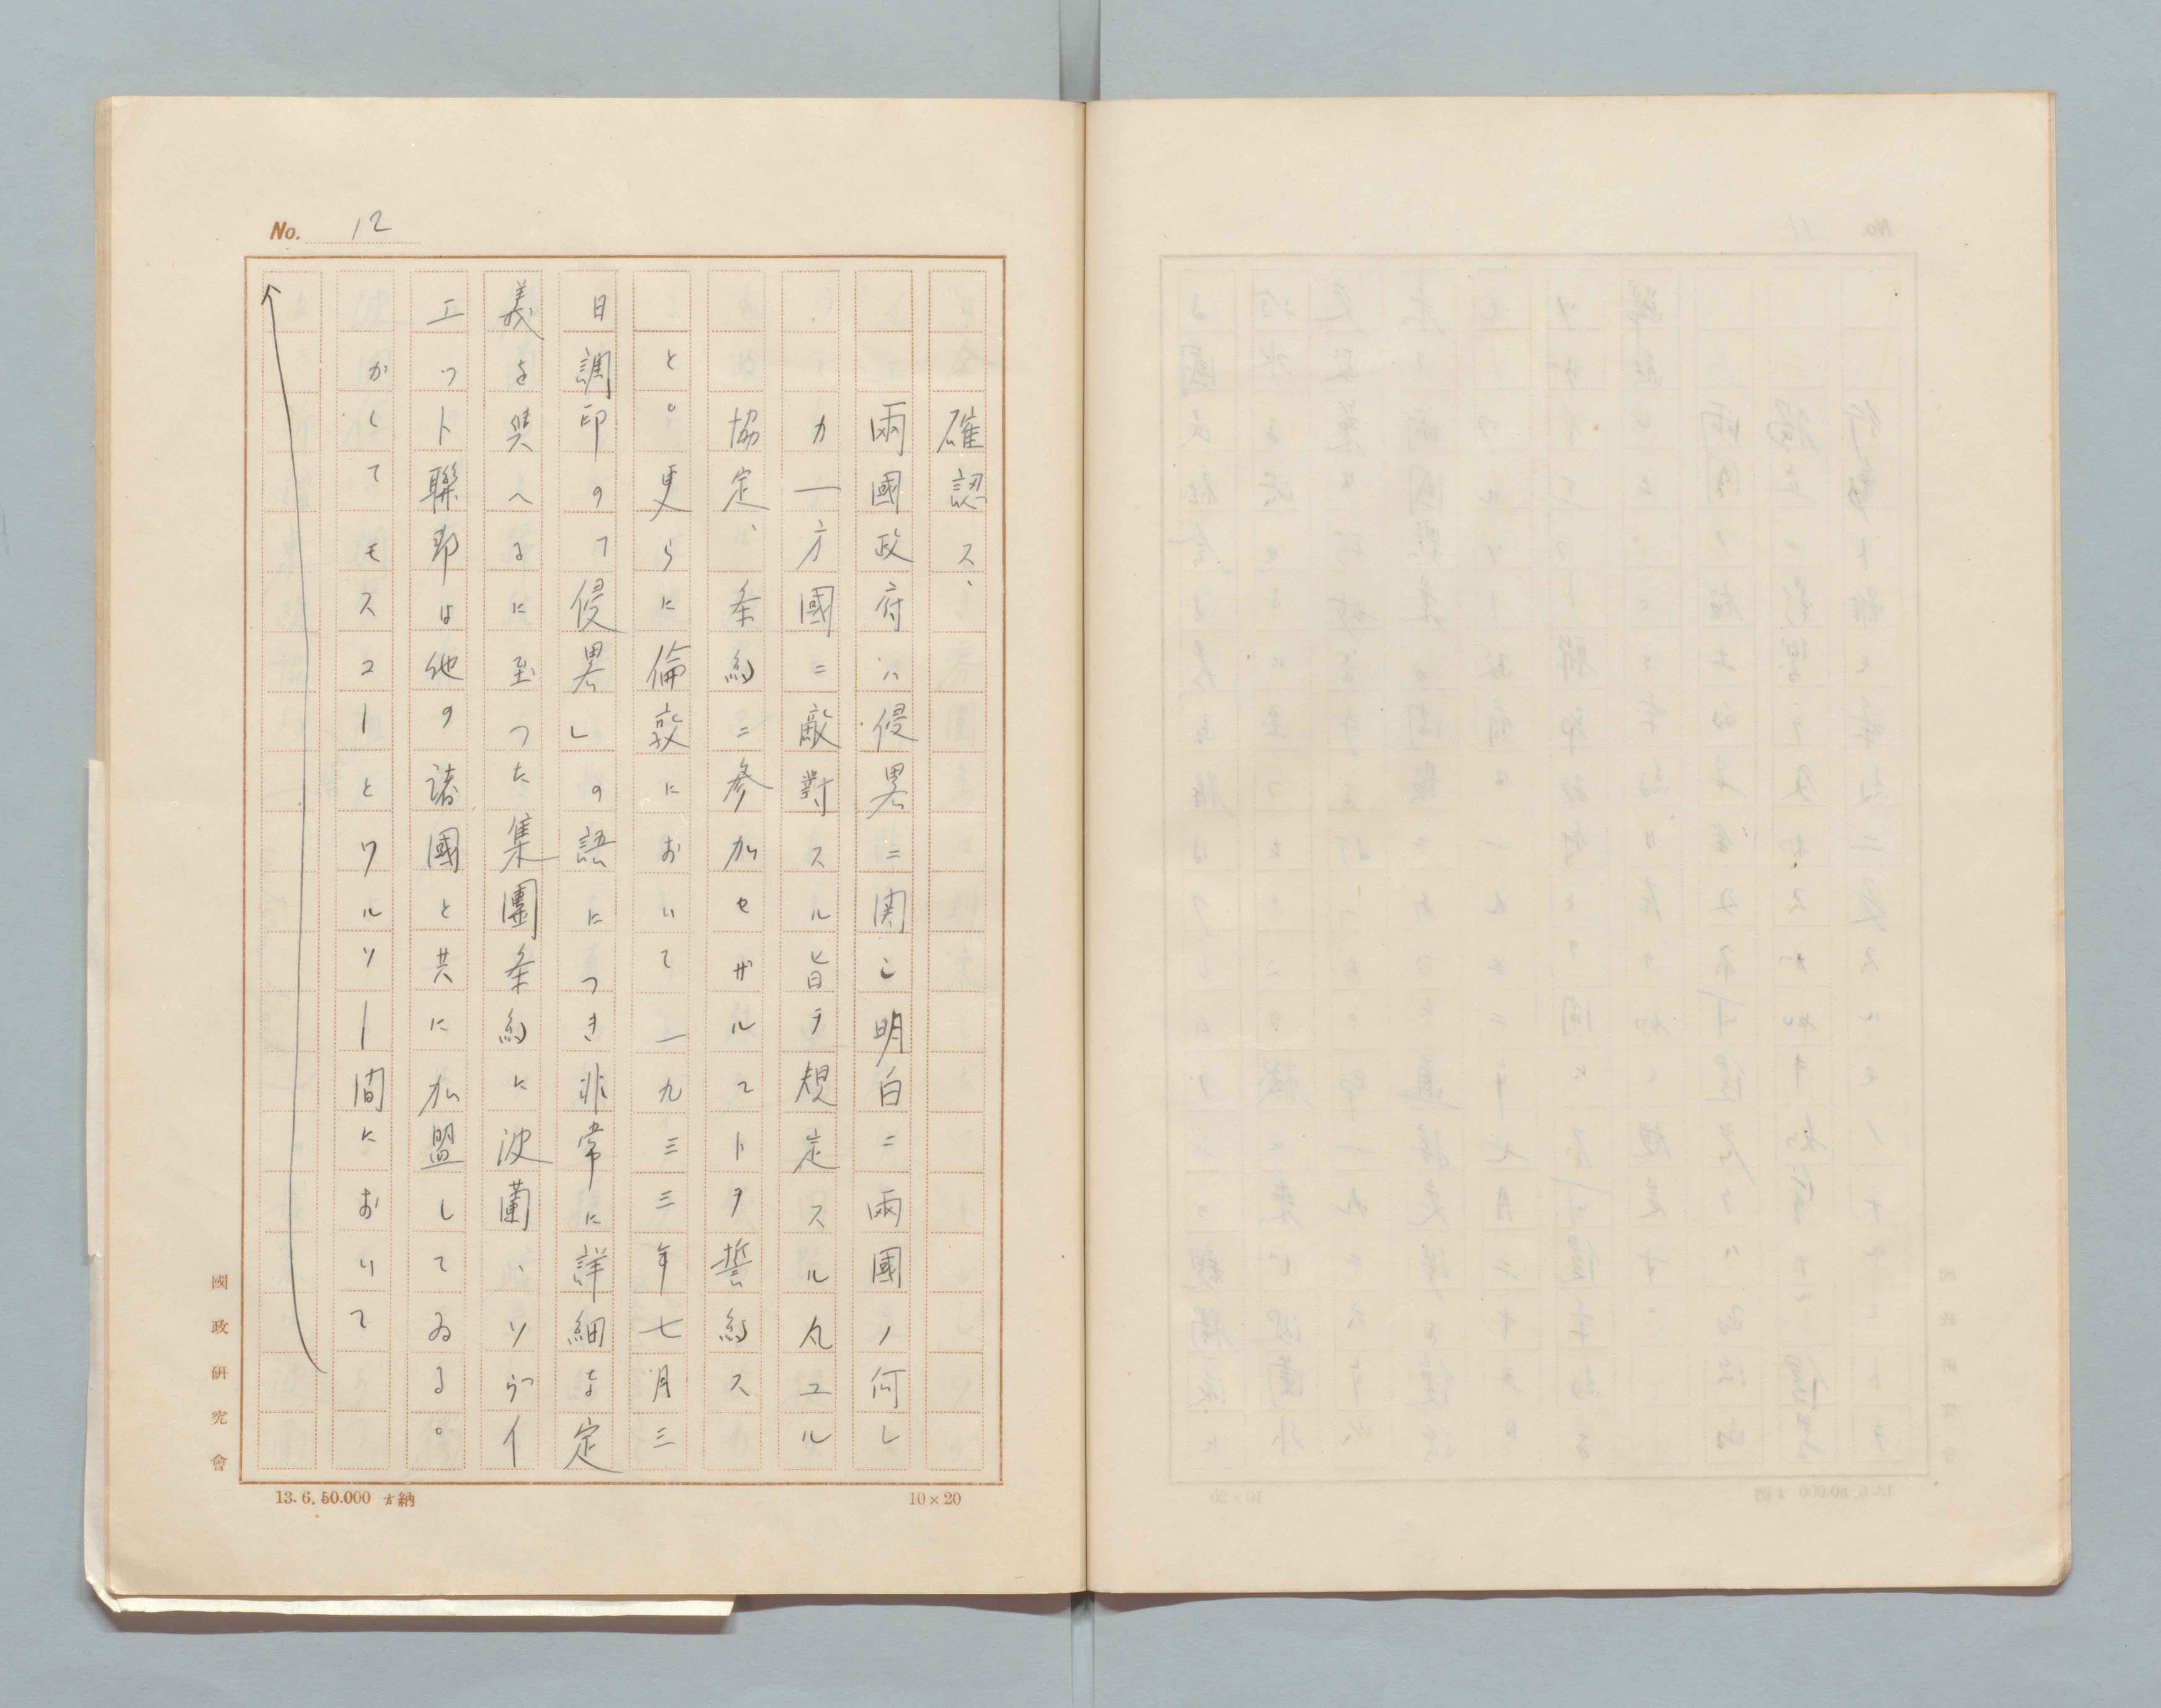 No. 12
確認ス、
兩國政府ハ侵畧ニ関シ明白ニ兩國ノ何レ
カ一方國ニ敵對スル旨ヲ規定スル凡ユル
協定、条約ニ参加セザルコトヲ誓約ス
と。更らに倫敦において一九三三年七月三
日調印の「侵畧」の語につき非常に詳細な定
義を與へるに至つた集團条約に波蘭、ソヴイ
エツト聯邦は他の諸國と共に加盟してゐる。
かくてモスコーとワルソー間において
國政研究會
13.6.50.000 納
10×20